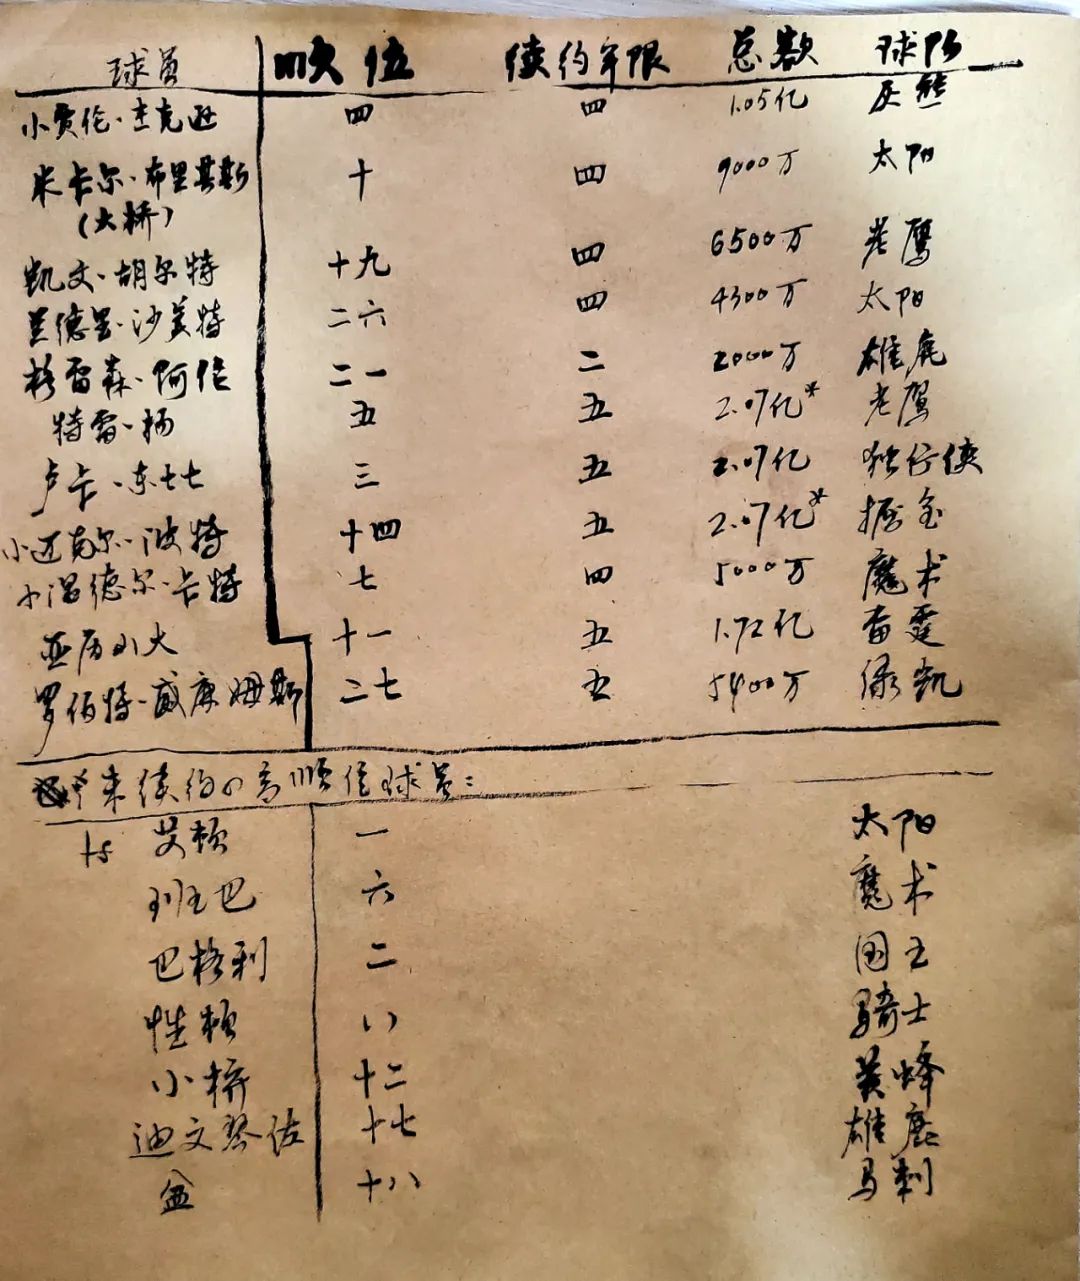 球员 顺位 续约年限 总数 球队
小贾伦·杰克逊 四 四 1.05亿 灰熊
米卡尔·布里其斯 十 四 9000万 太阳
(大桥)
凯文·胡尔特 十九 四 6500万 老鹰
兰德里·沙美特 二六 四 4300万 太阳
格雷森·阿伦 二一 二 2000万 雄鹿
特雷·杨 五 五 2.07亿* 老鹰
卢卡·东七七 三 五 2.07亿 独行侠
小迈克尔·波特 十四 五 2.07亿* 掘金
小温德尔·卡特 七 四 5000万 魔术
亚历山大 十一 五 1.72亿 雷霆
罗伯特·威廉姆斯 二七 五 5400万 绿凯
未续约の高顺位球员:
艾顿 一 太阳
班巴 六 魔术
巴格利 二 国王
性顿 八 骑士
小桥 十二 黄蜂
迪文琴佐 十七 雄鹿
十八 马刺